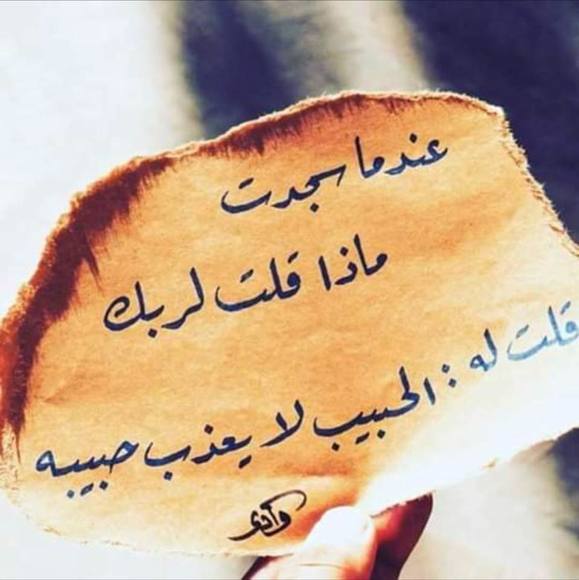 عندما سجدت
ماذا قلت لربك
قلت له : الحبيب لا يعذب حبيبه